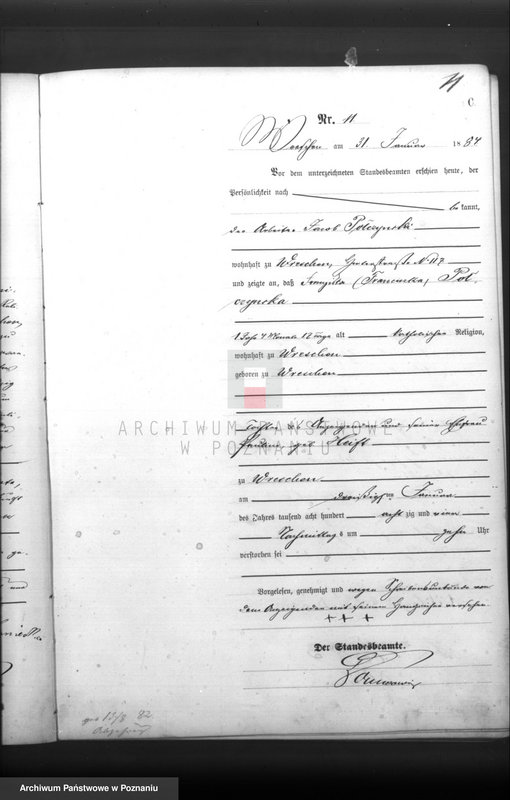 11
C
Nr. 11
Wreschen am 31. Januar 1884
Vor dem unterzeichneten Standesbeamten erschien heute, der
Persönlichkeit nach
be kannt,
der Arbeiter Jacob Polczynski
wohnhaft zu Wreschen, N 117
und zeigte an, daß Franziska (Franciszka) Pol-
czynska
1 Jahr 4 Monate 17 Tage alt katholischer Religion,
wohnhaft zu Wreschen
geboren zu Wreschen
Tochter des Anzeigenden und seiner Ehefrau
geb.
zu Wreschen
am dreißigsten Januar
des Jahres tausend acht hundert achtzig und vier
Nachmittags um zehn Uhr
verstorben sei
Vorgelesen, genehmigt und wegen Schreibensunkunde von
dem Anzeigenden mit seinem Handzeichen versehen.
+ + +
Der Standesbeamte.
geb 13/8 82
ARCHIWUM PAŃSTWOWE
W POZNANIU
Archiwum Państwowe w Poznaniu